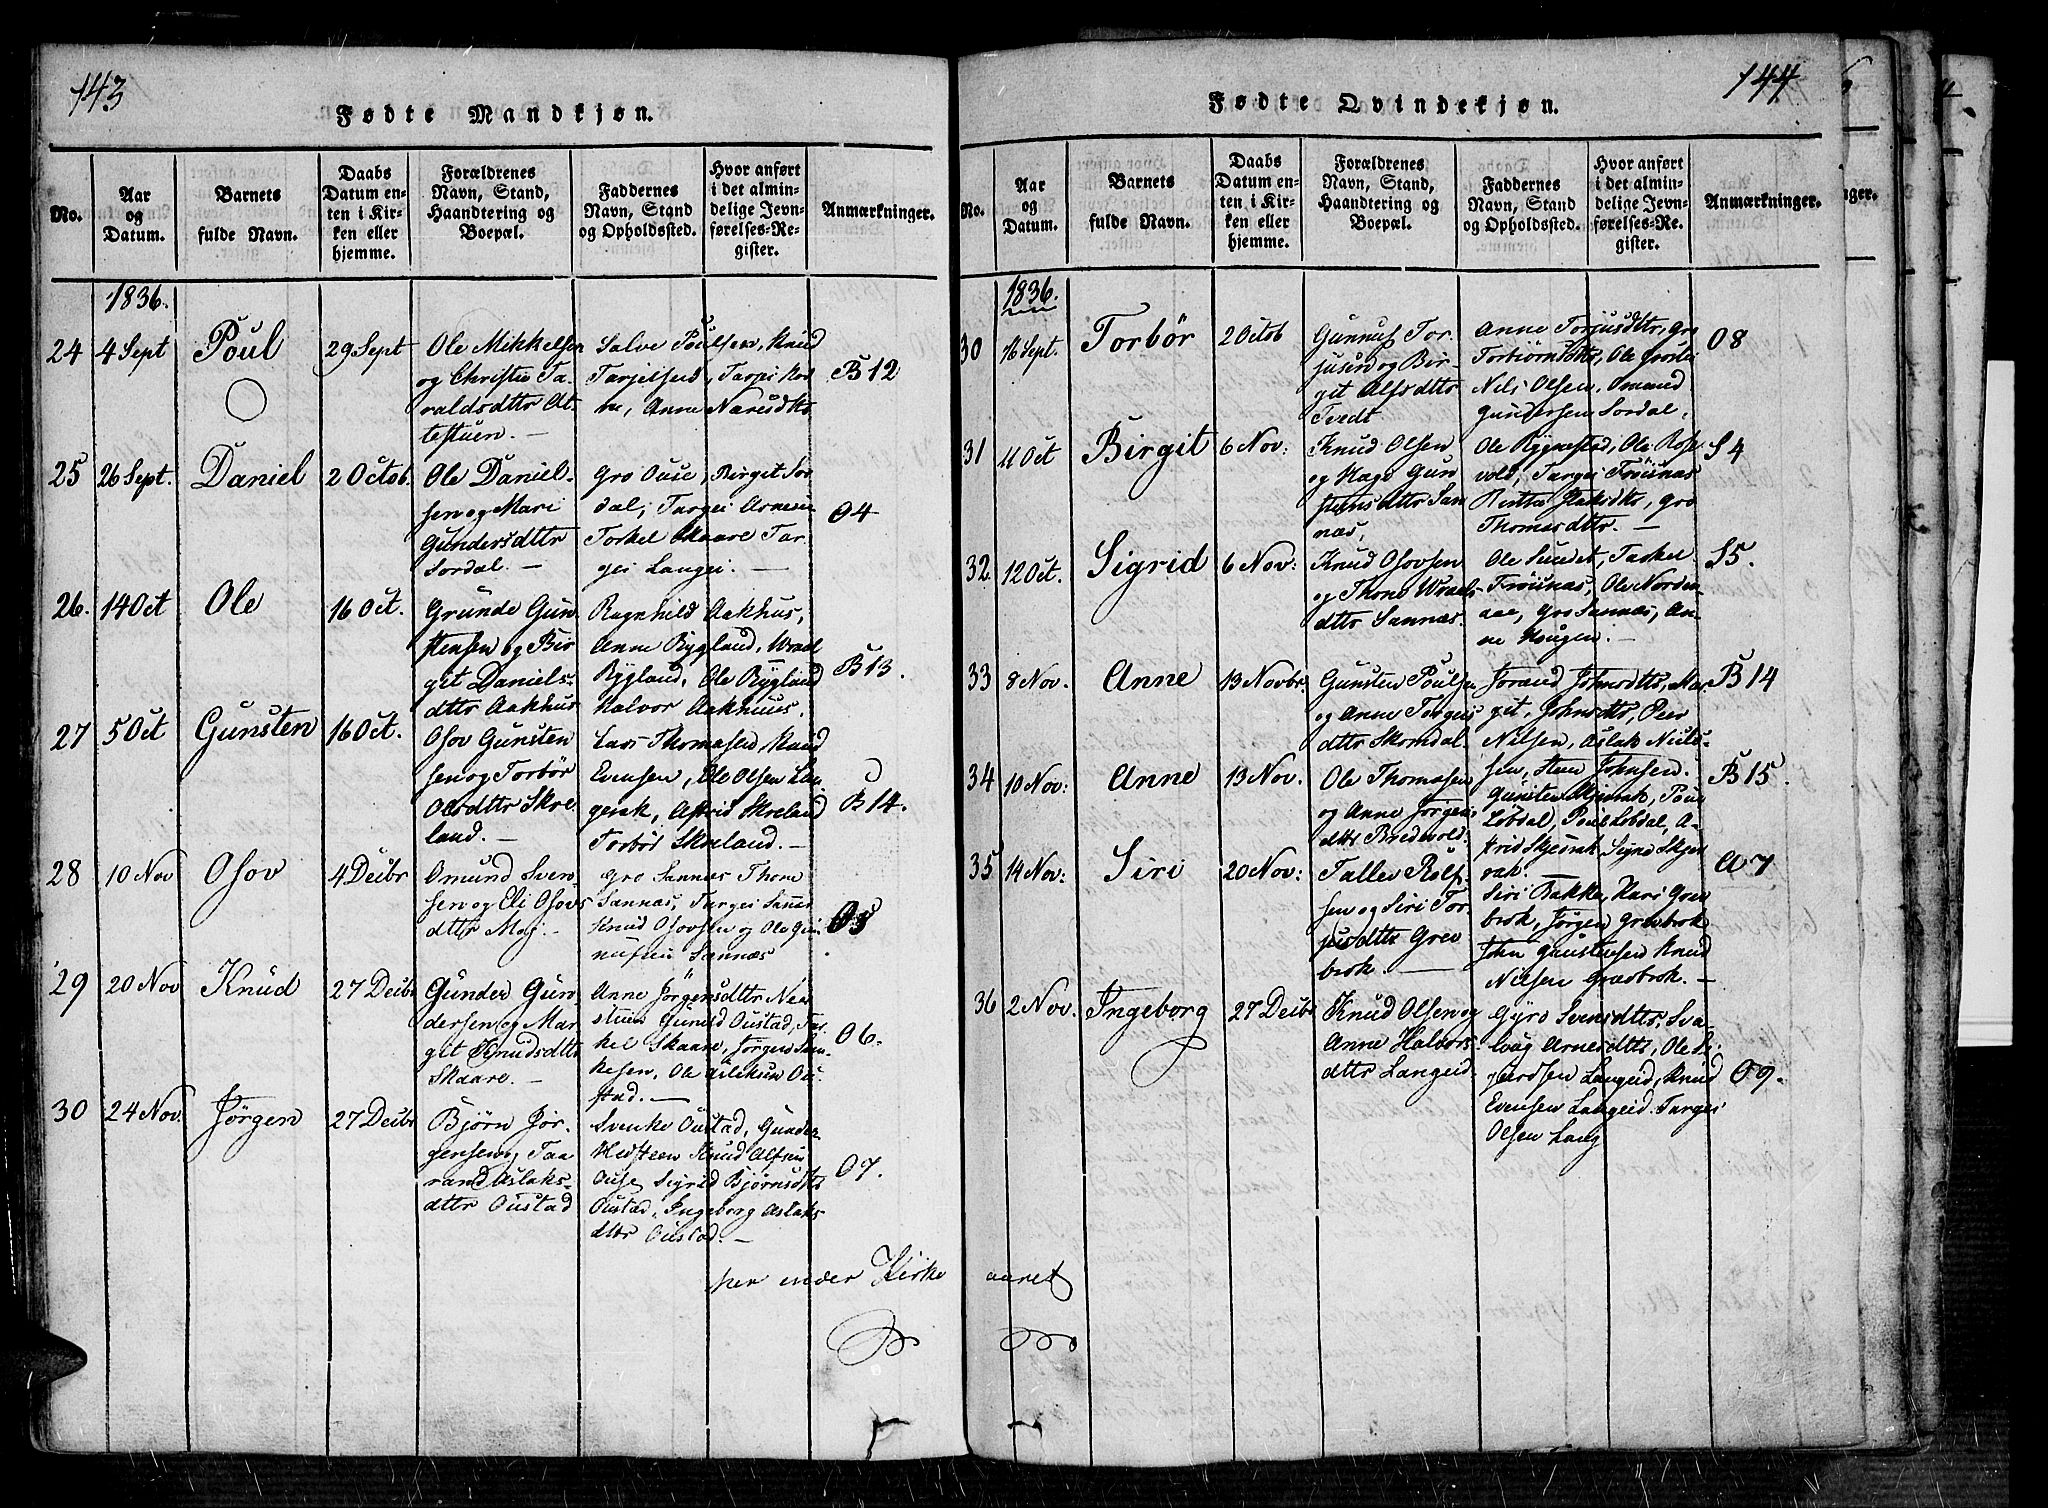 143
Fødte Mandkjøn.
No.
Aar og Datum.
Barnets fulde Navn.
Daabs Datum enten i Kirken eller hjemme.
Forældrenes Navn, Stand, Haandtering og Boepæl.
Faddernes Navn, Stand og Opholdssted.
Hvor anført i det almindelige Jevnførelses-Register.
Anmærkninger.
1836.
24
4 Sept
Poul
29 Sept
Ole Mikkelsen
og Christie Ta-
raldsdttr At-
testuen. —
Salve Poulsen, Knud
Tarjeisen, Tarjei
Anne
B12
25
26 Sept.
Daniel
2 Octob.
Ole Daniel-
sen og Mari
Gundersdttr
Sordal. —
Gro Ouse, Birgit Sor-
dal, Targei Arnesen
Torkel Skaare Tar-
gei Langei. —
04
26.
14 Oct
Ole
16 Oct.
Grunde Gun-
stensen og Bir
git Daniels-
dttr Aakhus
Ragnhild Aakhus,
Anne Rygland, Wraal
Rygland, Ole Rygland
Halvor Aakhuus.
B13.
27
5 Oct
Gunsten
16 Oct.
Osov Gunsten
sen og Torbør
Olsdttr Skre-
land. —
Lars Thomasen, Knud
Evensen, Ole Olsen Lan-
gerak, Astrid Skreland
Torbør Skreland. —
B14.
28
10 Nov
Osov
4 Decbr
Omund Sven-
sen og Eli Osovs
dttr Moj. —
Gro Sannes Thom
Sannas, Targei Sannes
Knud Osovsen og Ole Gun-
nufsen Sannas
05
29
20 Nov
Knud
27 Decbr
Gunder Gun-
dersen og Mar-
git Knudsdttr
Skaare. —
Anne Jørgensdttr Nes-
stuen Gunild Oustad, Tar-
kel Skaare, Jørgen Sven-
kesen, Ole Ou-
stad. —
06.
30
24 Nov.
Jørgen
27 Decbr
Bjørn Jør-
gensen og Taa-
rand Aslaks-
dttr Oustad
Svenke Oustad, Gunder
Hersteen Knud Alfsen
Ouse Sigrid Bjørnsdttr
Oustad, Ingeborg Aslaks
dttr Oustad. —
07.
her ender Kirke aaret
144
Fødte Qvindekjøn.
No.
Aar og Datum.
Barnets fulde Navn.
Daabs Datum enten i Kirken eller hjemme.
Forældrenes Navn, Stand, Haandtering og Boepæl.
Faddernes Navn, Stand og Opholdssted.
Hvor anført i det almindelige Jevnførelses-Register.
Anmærkninger.
1836.
30
16 Sept.
Torbör
2 Octob
Gunnuf Tor-
jusen og Bir-
git Alfsdttr
Tvedt
Anne Torjusdttr, Gro
Torbiørnsdttr, Ole
Nils Olsen, Ommund
Gundersen Sordal.
08
31
11 Oct
Birgit
6 Nov:
Knud Olsen
og Hage Gun
stensdttr San
nas,
Ole Rygnestad, Ole Ros-
vold, Targei Fröisnas
Gro
Thomasdttr. —
S4
32
12 Oct.
Sigrid
6 Nov:
Knud Osovsen
og Thone Wraals-
dttr Sannas.
Ole Sundet, Tarkel
Fröisnas, Ole Norden-
aae, Gro Sannas, An-
ne Haugen. —
S5.
33
8 Nov.
Anne
13 Novbr.
Gunsten Poulsen
og Anne Targeis
dttr Skomdal.
Jorand Johnsdttr, Mar
git, Johnsdttr, Peer
Nilsen, Aslak Niels-
sen, Steen Johnsen.
B14
34
10 Nov:
Anne
13 Nov.
Ole Thomasen
og Anne Jørgens
dttr Bredvold.
Gunsten Skjevrak, Poul
Løbdal, Poul Løbdal, A-
strid Skjevrak Signe Skjev
rak.
B15.
35
14 Nov:
Siri
20 Nov:
Tallev Rolf-
sen og Siri Tor-
jusdttr Grev
brok. —
Siri Bakke, Kari Grev
brok, Jørgen Grevbrok
John Gunstensen Knud
Nilsen Grevbrok. —
A7
36
2 Nov.
Ingeborg
27 Decbr
Knud Olsen og
Anne Halvors-
dttr Langeid.
Gyro Svensdttr, Sva-
laug Arnesdttr, Ole Si-
gurdsen Langeid, Knud
Evensen Langeid. Targei
Olsen Lang
09.